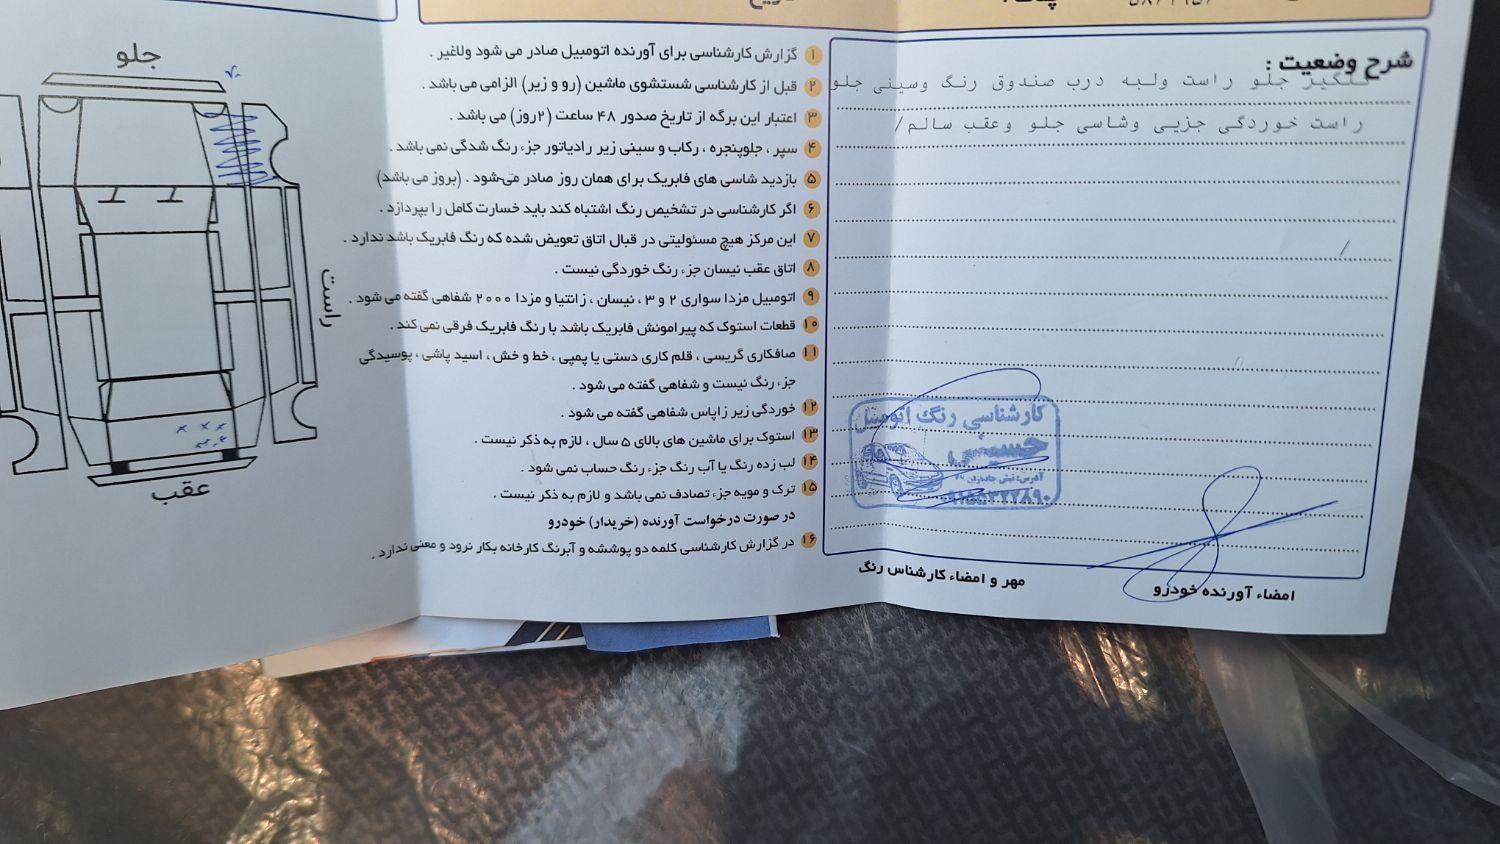 شرح وضعیت :
گلگیر جلو راست ولبه درب صندوق رنگ وسینی جلو
راست خوردگی جزیی وشاسی جلو وعقب سالم/
/
کارشناسی رنگ اتومبیل
حسینی
مهر و امضاء کارشناس رنگ
امضاء آورنده خودرو
۱ گزارش کارشناسی برای آورنده اتومبیل صادر می شود ولاغیر .
۲ قبل از کارشناسی شستشوی ماشین (رو و زیر) الزامی می باشد .
۳ اعتبار این برگه از تاریخ صدور ۴۸ ساعت (۲روز) می باشد .
۴ سپر ، جلوپنجره ، رکاب و سینی زیر رادیاتور جزء رنگ شدگی نمی باشد .
۵ بازدید شاسی های فابریک برای همان روز صادر می‌شود . (بروز می باشد)
۶ اگر کارشناسی در تشخیص رنگ اشتباه کند باید خسارت کامل را بپردازد .
۷ این مرکز هیچ مسئولیتی در قبال اتاق تعویض شده که رنگ فابریک باشد ندارد .
۸ اتاق عقب نیسان جزء رنگ خوردگی نیست .
۹ اتومبیل مزدا سواری ۲ و ۳ ، نیسان ، زانتیا و مزدا ۲۰۰۰ شفاهی گفته می شود .
۱۰ قطعات استوک که پیرامونش فابریک باشد با رنگ فابریک فرقی نمی کند .
۱۱ صافکاری گریسی ، قلم کاری دستی یا پمپی ، خط و خش ، اسید پاشی ، پوسیدگی
جزء رنگ نیست و شفاهی گفته می شود .
۱۲ خوردگی زیر زاپاس شفاهی گفته می شود .
۱۳ استوک برای ماشین های بالای ۵ سال ، لازم به ذکر نیست .
۱۴ لب زده رنگ یا آب رنگ جزء رنگ حساب نمی شود .
۱۵ ترک و مویه جزء تصادف نمی باشد و لازم به ذکر نیست .
در صورت درخواست آورنده (خریدار) خودرو
۱۶ در گزارش کارشناسی کلمه دو پوششه و آبرنگ کارخانه بکار نرود و معنی ندارد .
جلو
راست
عقب